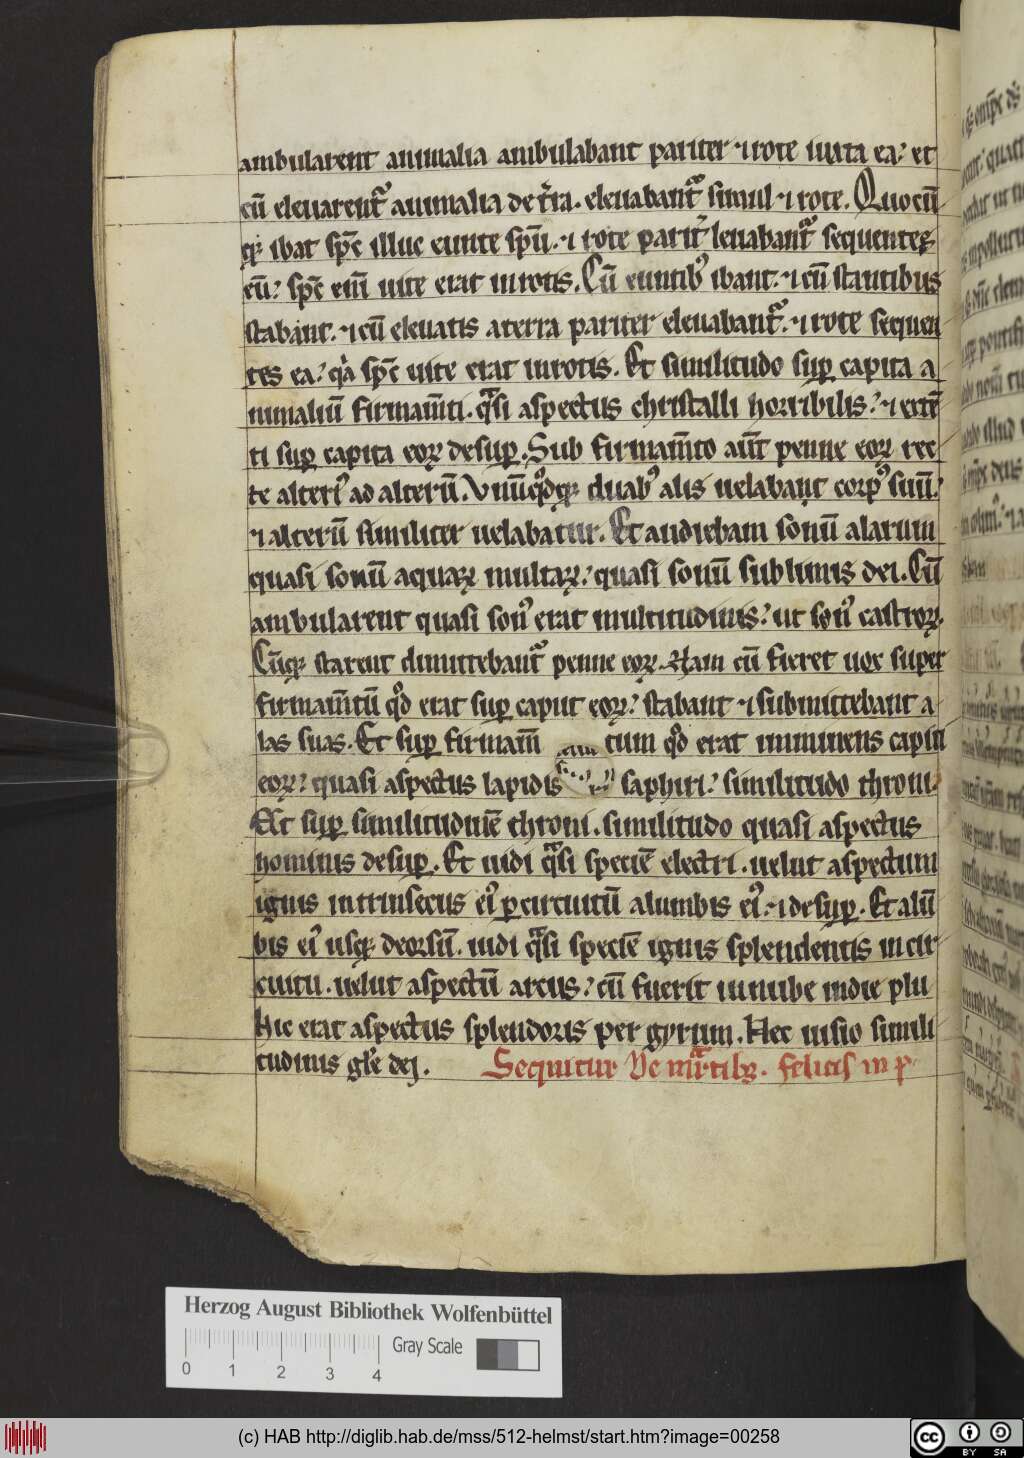 ambularent animalia ambulabant pariter ⁊ rote iuxta ea. et
cū eleuarent᷑ animalia de t̄ra. eleuabant᷑ simul ⁊ rote. Quocū
q; ibat sp̄c illuc eunte sp̄u. ⁊ rote parit̉ leuabant᷑ sequentes
eū. sp̄c eni̅ uite erat in rotis. Cū euntib᷒ ibant. ⁊ cū stantibus
stabant. ⁊ cū eleuatis a terra pariter eleuabant᷑. ⁊ rote sequen
tes ea. q̇a sp̄c uite erat in rotis. Et similitudo sup̲ capita a
nimaliū firmam̄ti. qᷓsi aspectus christalli horribilis. ⁊ extē
ti sup̲ capita eoꝝ desup̲. Sub firmam̄to aut̄ penne eoꝝ rec
te alteri᷒ ad alterū. Vnūqͦdq; duab᷒ alis uelabant corp᷒ suū.
⁊ alterū similiter uelabatur. Et audiebam sonū alarum
quasi sonū aquaꝝ multaꝝ. quasi sonū sublimis dei. Cū
ambularent quasi son᷒ erat multitudinis. ut son᷒ castroꝝ.
Cūq; starent dimittebant᷑ penne eoꝝ. Nam cū fieret uox super
firmam̄tū qͦd erat sup̲ caput eoꝝ. stabant ⁊ submittebant a
las suas. Et sup̲ firmam̄ tum qͦd erat imminens capiti
eoꝝ. quasi aspectus lapidis saphiri. similitudo throni.
Et sup̲ similitudinē throni. similitudo quasi aspectus
hominis desup̲. Et uidi qᷓsi speciē electri. uelut aspectum
ignis intrinsecus ei᷒ ꝑ circuitū a lumbis ei᷒. ⁊ desup̲. Et a lū
bis ei᷒ usq; deorsū. uidi qᷓsi speciē ignis splendentis in cir
cuitu. uelut aspectū arcus. cū fuerit in nube in die plu
Hic erat aspectus splendoris per gyrum. Hec uisio simili
tudinis gl̄e dei. Sequitur De mᷓrtib;. felicis in p
Herzog August Bibliothek Wolfenbüttel
Gray Scale
0 1 2 3 4
(c) HAB http://diglib.hab.de/mss/512-helmst/start.htm?image=00258
cc BY SA